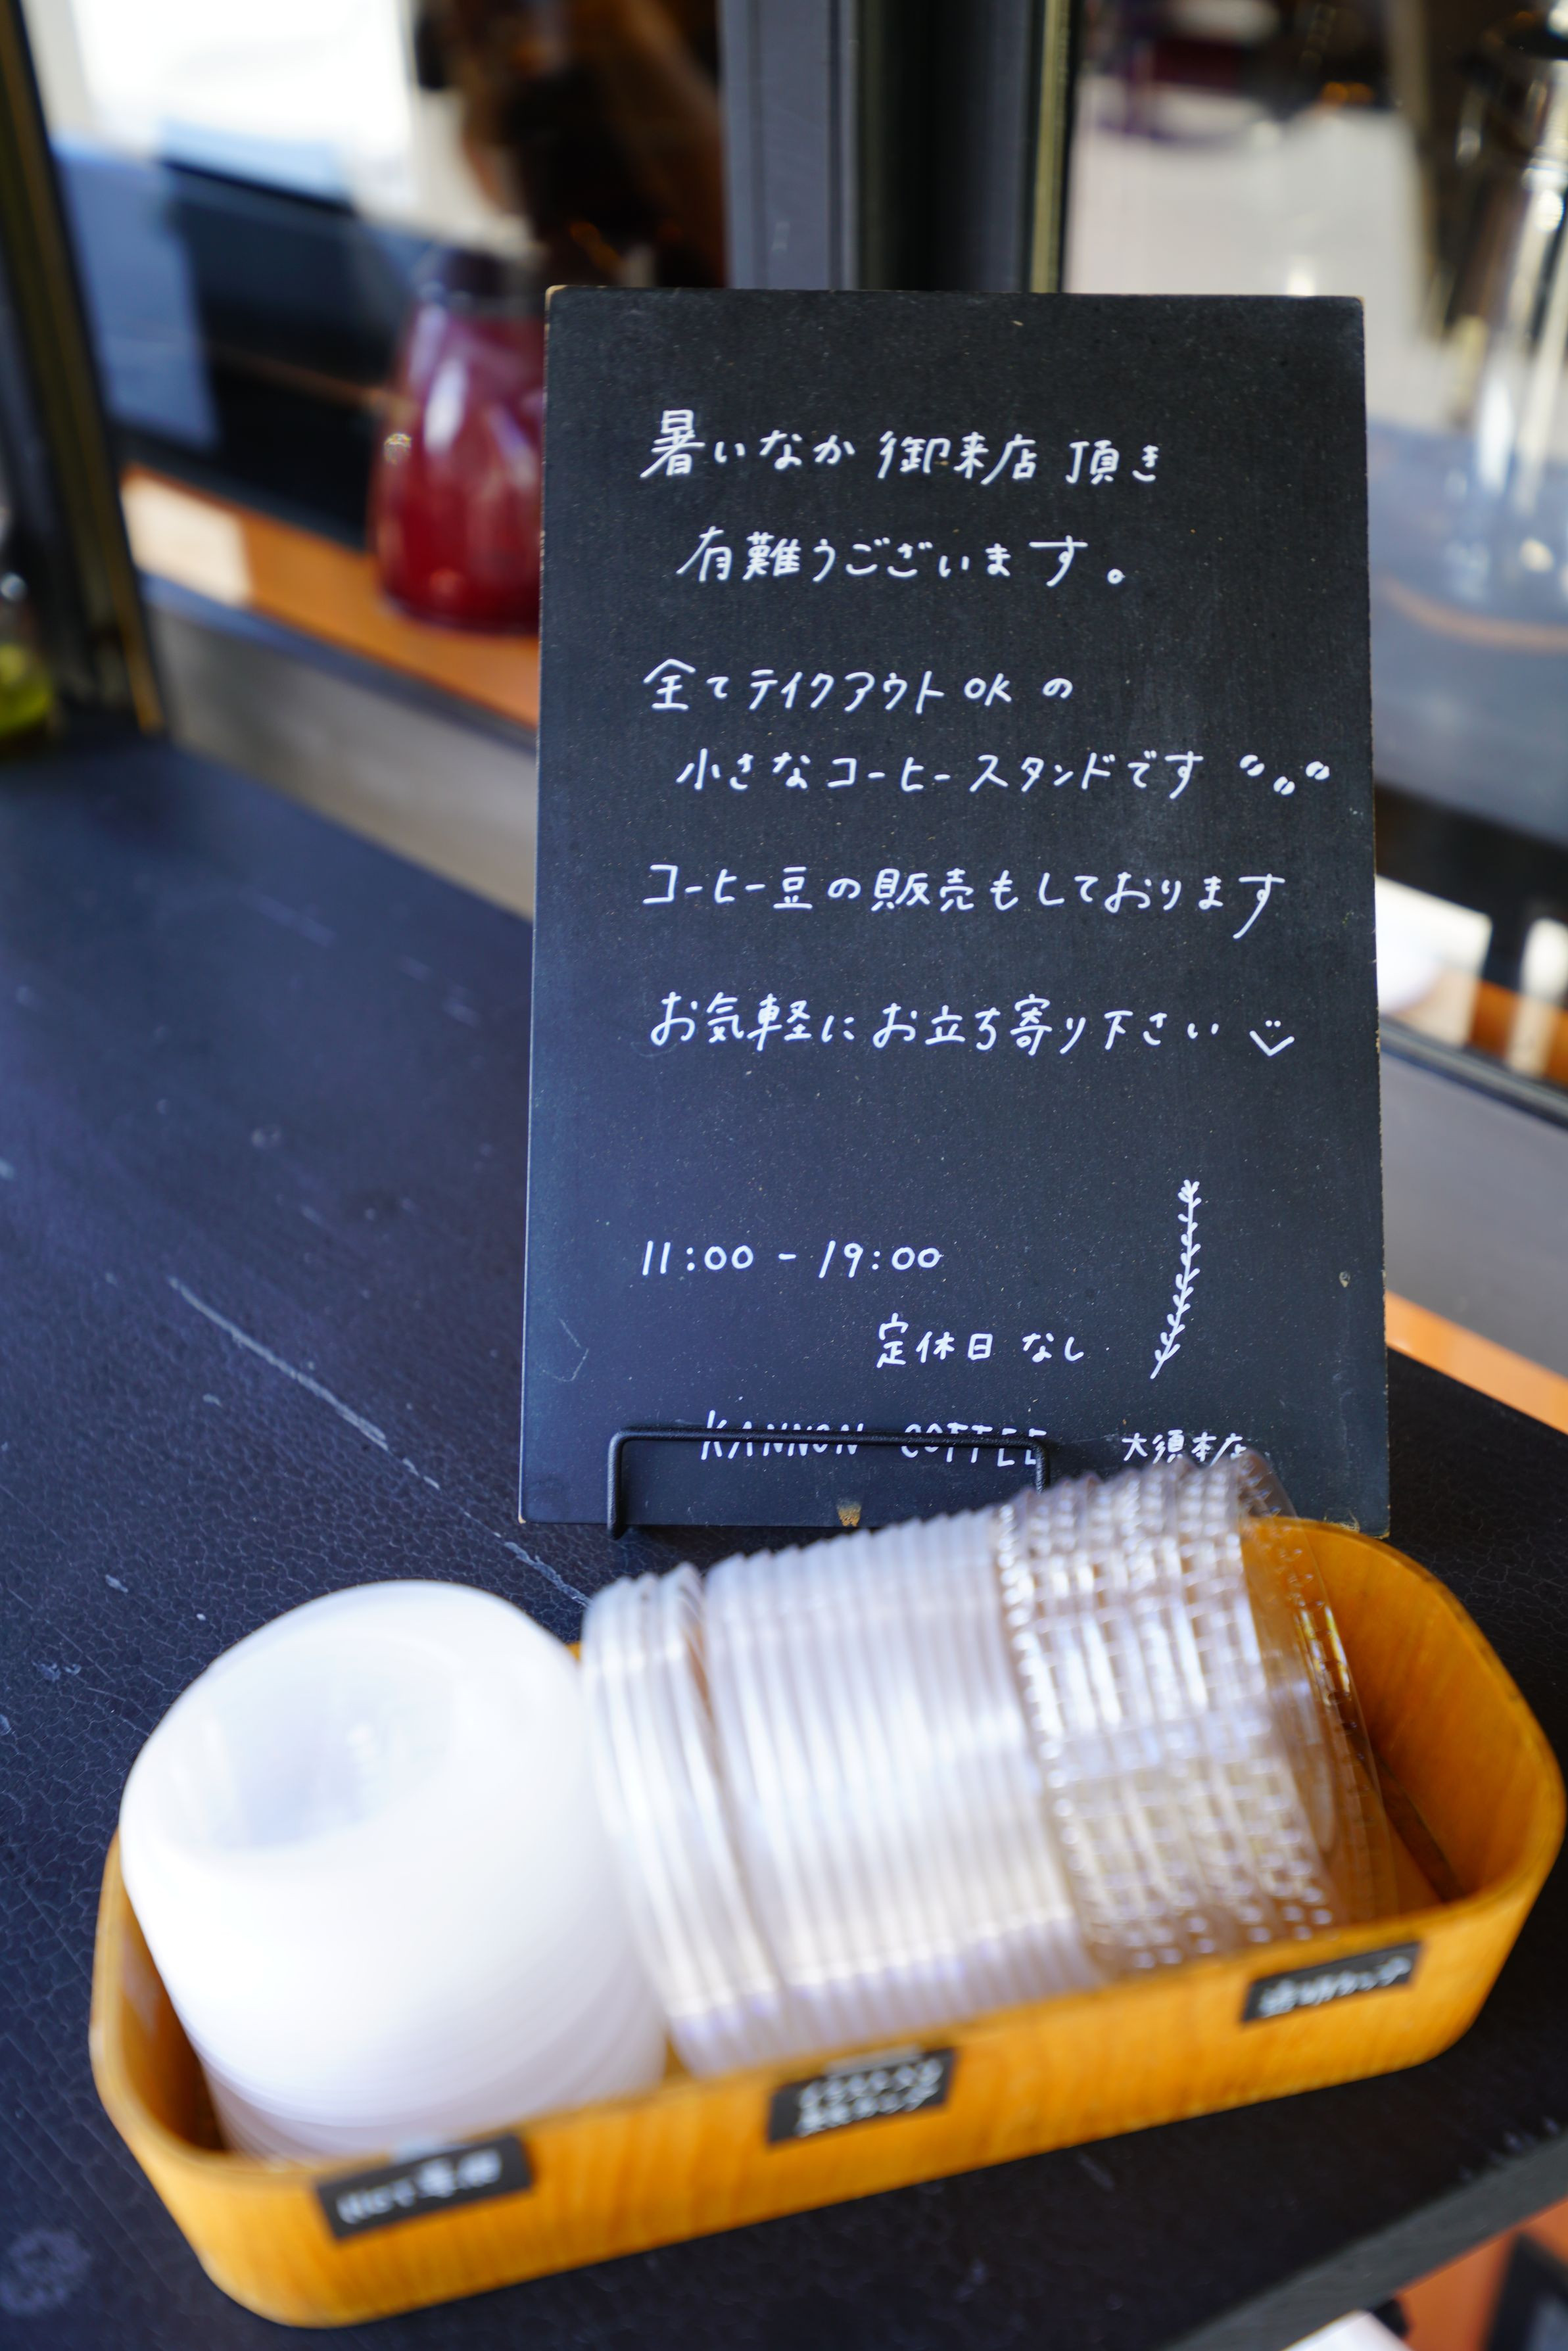 暑いなか 御来店 頂き
有難うございます。
全てテイクアウト OK の
小さなコーヒースタンドです
コーヒー豆の販売もしております
お気軽にお立ち寄り下さい
11:00 - 19:00
定休日 なし
KANNON COFFEE 大須本店